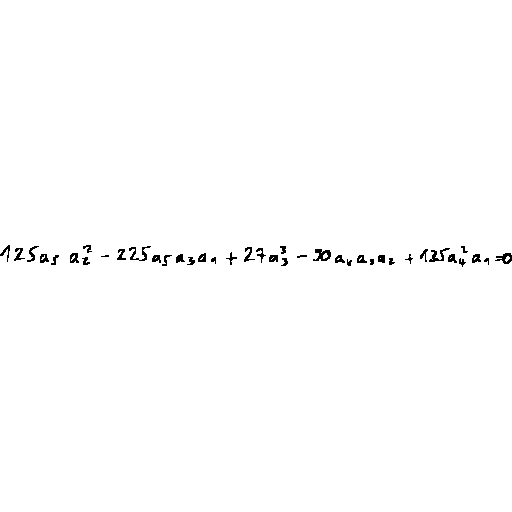 125a₅ a₂² − 225a₅a₃a₁ + 27a₃³ − 90a₄a₃a₂ + 135a₄²a₁=0